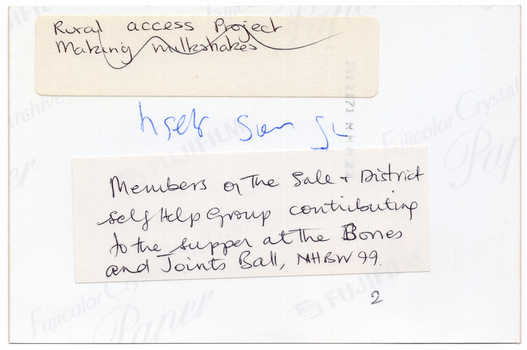 Rural access Project
Making milkshakes
Members of The Sale + District
Self Help Group contributing
to the supper at The Bones
and Joints Ball, NHBW 99.
2
Fujicolor Crystal
Archive
Paper
FUJIFILM
Fujicolor Crystal
Paper
FUJIFILM